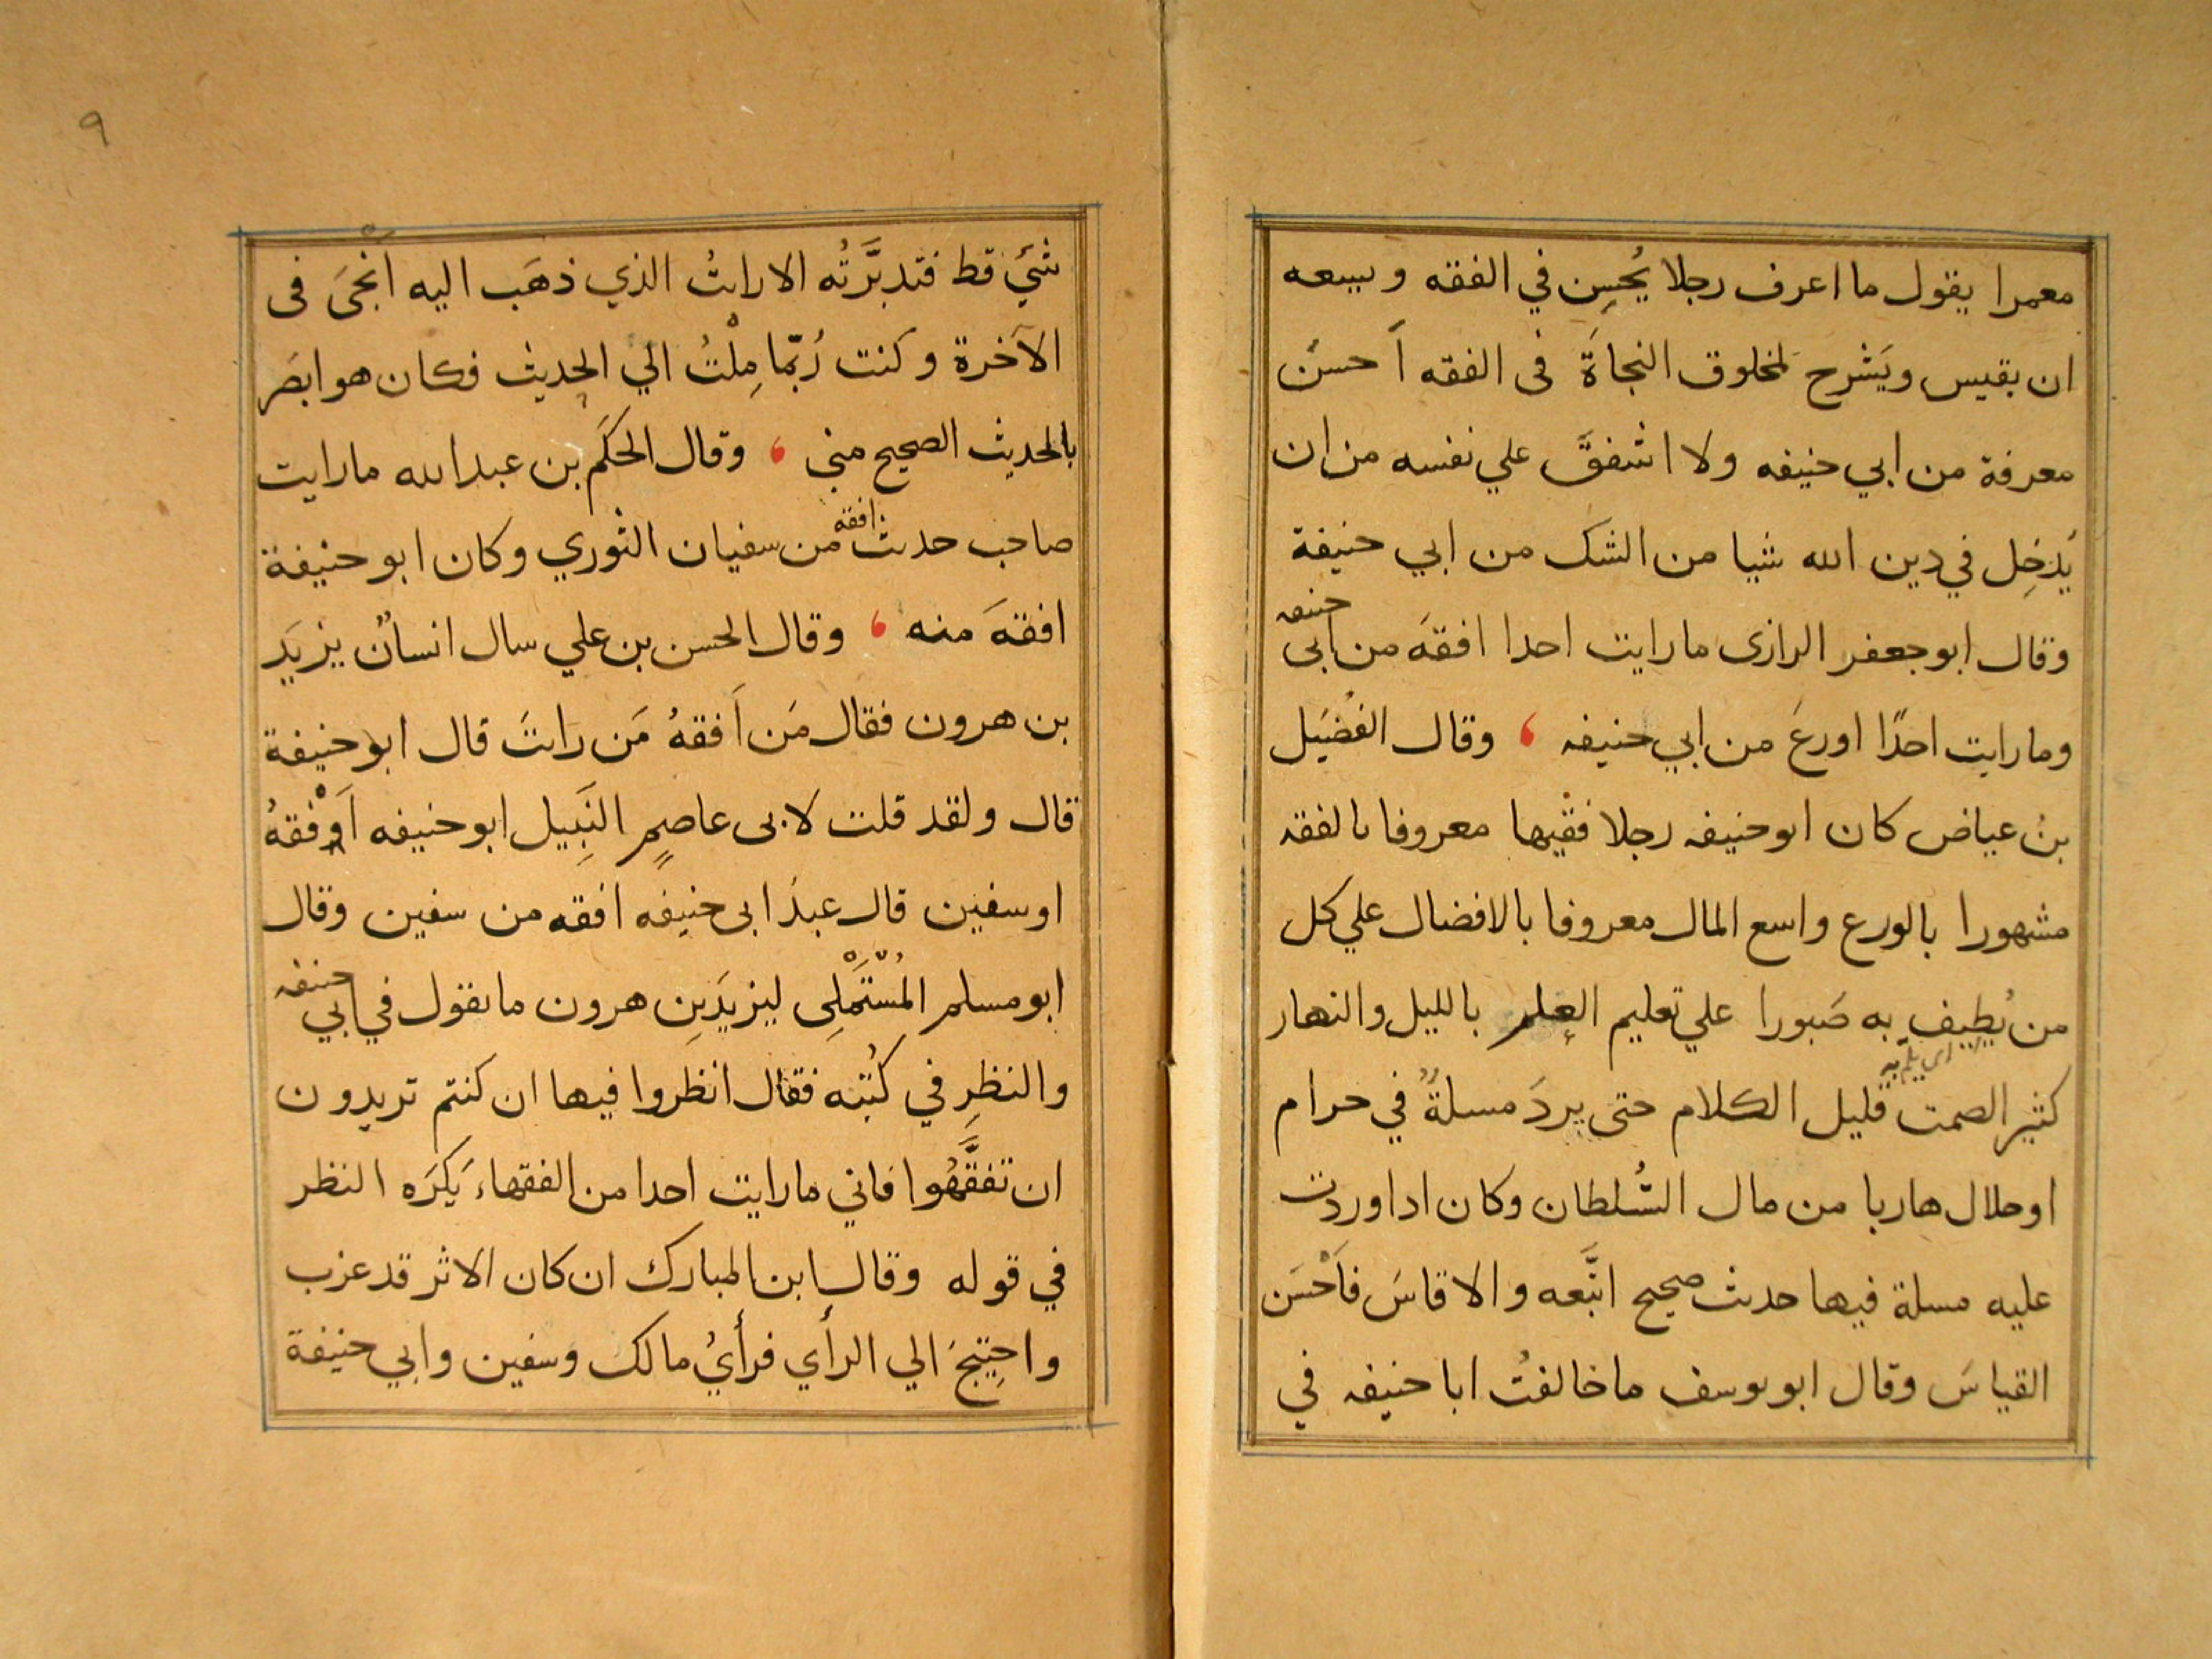 معمرا يقول ما اعرف رجلا يُحسِن في الفقه ويسعه
ان يقيس ويَشرح لمخلوق النجاةَ فى الفقه اَحسن
معرفة من ابي حنيفه ولا اشفقَ علي نفسه من ان
يُدخِل في دين الله شيا من الشك من ابي حنيفة
وقال ابو جعفر الرازى ما رايت احدا افقهَ من ابى حنيفه
وما رايت احدًا اورعَ من ابي حنيفه ، وقال الفُضَيل
بنُ عياض كان ابو حنيفه رجلا فقيها معروفا بالفقه
مشهورا بالورع واسع المال معروفا بالافضال علي كل
من يُطيف به صَبورا علي تعليم العِلم بالليل والنهار
اى يلم به
كثير الصمت قليل الكلام حتى يردَ مسلةٌ في حرام
او حلال هاربا من مال السُّلطان وكان اذا وردت
عليه مسلة فيها حديث صحيح اتَّبعه والا قاسَ فاَحْسَن
القياسَ وقال ابو يوسف ما خالفتُ ابا حنيفه في
٩
شيَئ قط فتدبَّرتُه الا رايتُ الذي ذهَب اليه اَنْجَى فى
الآخرة وكنت رُبّما مِلْتُ الي الحديث فكان هو ابصَر
بالحديث الصحيح مني ، وقال الحكَم بن عبد الله ما رايت
صاحب حديث افقه من سفيان الثوري وكان ابو حنيفة
افقهَ منه ، وقال الحسن بن علي سال انسانٌ يزيَد
بن هرون فقال مَن اَفقهُ مَن رايتَ قال ابو حنيفة
قال ولقد قلت لابى عاصمٍ النَبِيل ابو حنيفه اَفْقهُ
او سفين قال عبدُ ابى حنيفه افقه من سفين وقال
ابو مسلم المُسْتَمْلِى ليزيَدبنِ هرون ما تقول في ابي حنيفه
والنظرِ في كُتبه فقال انظروا فيها ان كنتم تريدون
ان تفقَّهُوا فاني ما رايت احدا من الفقهاء يَكرَه النظر
في قوله وقال ابن المبارك ان كان الاثر قد عزب
واحِتيجَ الي الرأي فرأيُ مالك وسفين وابي حنيفة